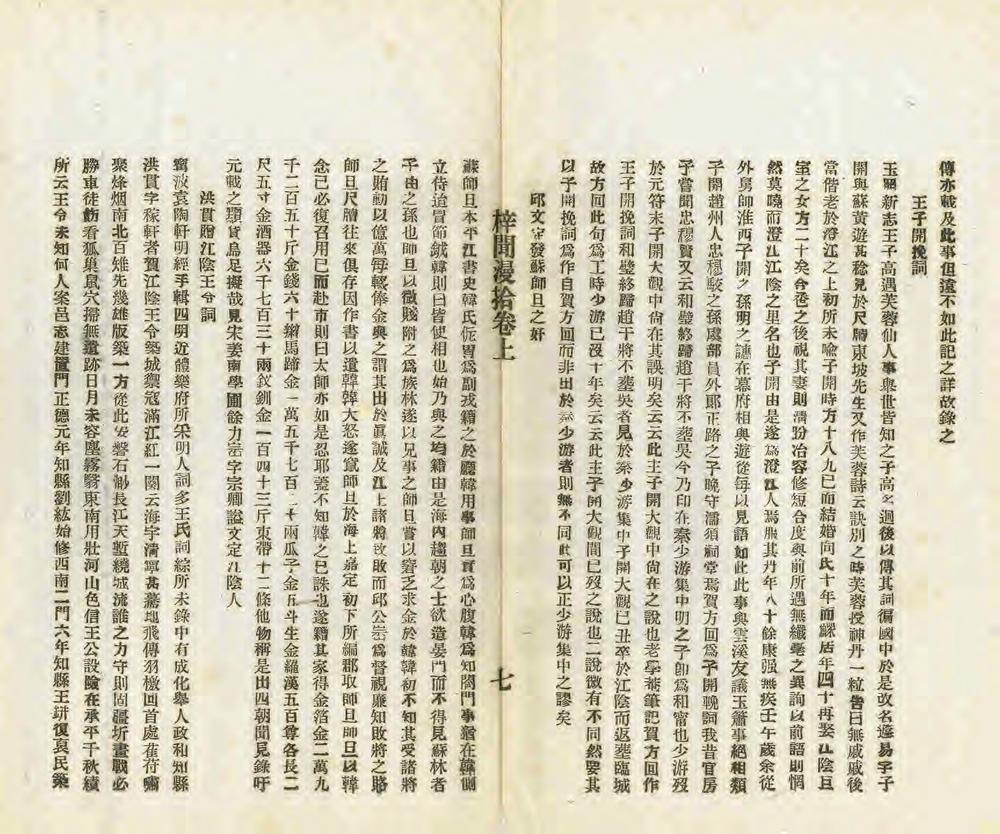 傳亦載及此事但遠不如此記之詳故錄之
王子開挽詞
玉照新志王子高遇芙蓉仙人事舉世皆知之子高名迥後以傳其詞徧國中於是改名蘧易字子
開與蘇黃遊甚稔見於尺牘東坡先生又作芙蓉詩云訣別之時芙蓉授神丹一粒告曰無戚戚後
當偕老於澄江之上初所未喻子開時方十八九已而結婚向氏十年而鰥居年四十再娶江陰巨
室之女方二十矣合卺之後視其妻則清盼冶容修短合度與前所遇無纖毫之異詢以前語則惘
然莫曉而澄江江陰之里名也子開由是遂為澄江人焉服其丹年八十餘康强無疾壬午歲余從
外舅師淮西子開之孫明之讜在幕府相與遊從每以見語如此此事與雲溪友議玉簫事絕相類
子開趙州人忠穆鬷之孫虞部員外郎正路之子晚守濡須祠堂焉賀方回為子開輓詞我昔官房
子嘗聞忠穆賢又云和璧終歸趙干將不葬吳今乃印在秦少游集中明之子即為和甯也少游歿
於元符末子開大觀中尚在其誤明矣云云此主子開大觀中尚在之說也老學菴筆記賀方回作
王子開挽詞和璧終歸趙干將不葬吳者見於秦少游集中子開大觀己丑卒於江陰而返葬臨城
故方回此句為工時少游已沒十年矣云云此主子開大觀間已歿之說也二說微有不同然要其
以子開挽詞為作自賀方回而非出於秦少游者則無不同此可以正少游集中之謬矣
邱文守發蘇師旦之奸
梓聞漫拾卷上
七
蘇師旦本平江書史韓氏侂冑為副戎籍之於廳韓用事師旦實為心腹韓為知閣門事猶在韓側
立侍迨冒節鉞韓則曰皆使相也始乃與之均籍由是海內趨朝之士欲造晏門而不得見蘇林者
子由之孫也師旦以微賤附之為族林遂以兄事之師旦嘗以窘乏求金於韓韓初不知其受諸將
之賄動以億萬每輟俸金與之謂其出於真誠及江上諸將敗而邱公崈為督視廉知敗將之賂
師旦尺牘往來俱存因作書以遺韓韓大怒遂竄師旦於海上嘉定初下所編郡取師旦師旦以韓
念已必復召用已而赴市則曰太師亦如是忍耶蓋不知韓之已誅也遂籍其家得金箔金二萬九
千二百五十斤金錢六十辮馬蹄金一萬五千七百二十兩瓜子金五斗生金羅漢五百尊各長二
尺五寸金酒器六千七百三十兩釵釧金一百四十三斤束帶十二條他物稱是出四朝聞見錄吁
元載之類貨烏足擬哉見宋姜南學圃餘力崈字宗卿諡文定江陰人
洪貫贈江陰王令詞
甯波袁陶軒明經手輯四明近體樂府所采明人詞多王氏詞綜所未錄中有成化舉人政和知縣
洪貫字稼軒者賀江陰王令築城禦寇滿江紅一闋云海宇清寧甚驀地飛傳羽檄回首處萑苻嘯
聚烽烟南北百雉先幾雄版築一方從此安磐石勑長江天塹繞城流誰之力守則固疆圻畫戰必
勝車徒飭看狐巢鼠穴掃無遺跡日月未容塵霧翳東南用壯河山色信王公設險在承平千秋績
所云王令未知何人案邑志建置門正德元年知縣劉紘始修西南二門六年知縣王𨥤復裒民築